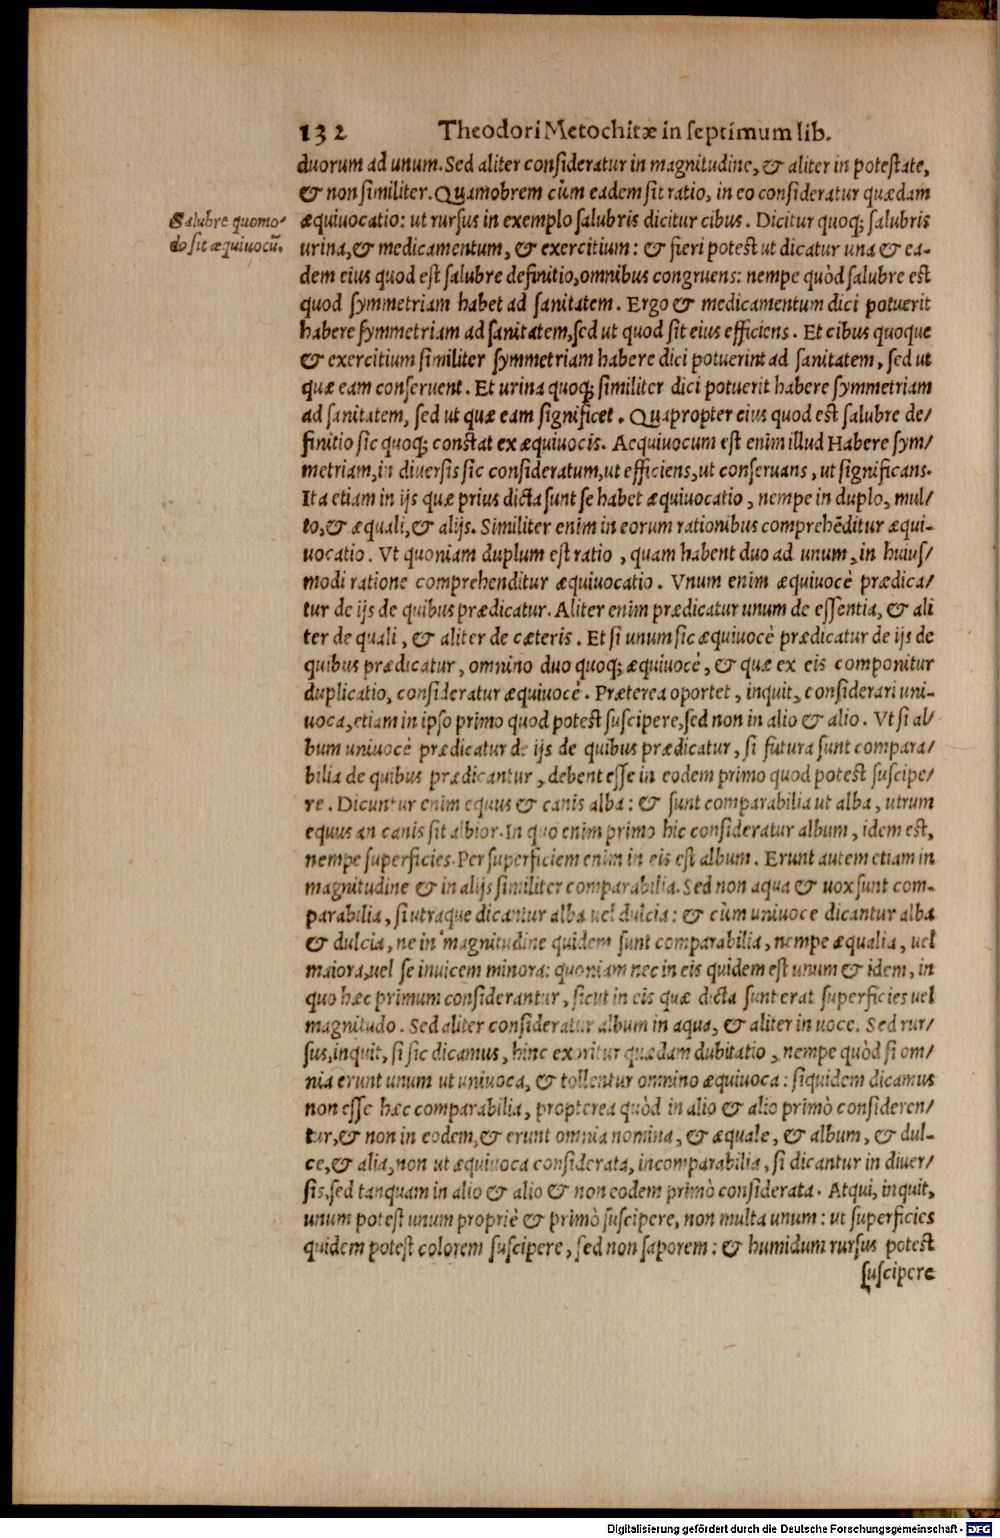 132 Theodori Metochitæ in septimum lib.
duorum ad unum. Sed aliter consideratur in magnitudine, & aliter in potestate,
& non similiter. Quamobrem cùm eadem sit ratio, in eo consideratur quædam
Salubre quomo-
do sit æquiuocũ.
æquiuocatio: ut rursus in exemplo salubris dicitur cibus. Dicitur quoq; salubris
urina, & medicamentum, & exercitium: & fieri potest ut dicatur una & ea-
dem eius quod est salubre definitio, omnibus congruens: nempe quòd salubre est
quod symmetriam habet ad sanitatem. Ergo & medicamentum dici potuerit
habere symmetriam ad sanitatem, sed ut quod sit eius efficiens. Et cibus quoque
& exercitium similiter symmetriam habere dici potuerint ad sanitatem, sed ut
quæ eam conseruent. Et urina quoq; similiter dici potuerit habere symmetriam
ad sanitatem, sed ut quæ eam significet. Quapropter eius quod est salubre de-
finitio sic quoq; constat ex æquiuocis. Aequiuocum est enim illud Habere sym-
metriam, in diuersis sic consideratum, ut efficiens, ut conseruans, ut significans.
Ita etiam in ijs quæ prius dicta sunt se habet æquiuocatio, nempe in duplo, mul-
to, & æquali, & alijs. Similiter enim in eorum rationibus comprehẽditur æqui-
uocatio. Vt quoniam duplum est ratio, quam habent duo ad unum, in huius-
modi ratione comprehenditur æquiuocatio. Vnum enim æquiuocè prædica-
tur de ijs de quibus prædicatur. Aliter enim prædicatur unum de essentia, & ali
ter de quali, & aliter de cæteris. Et si unum sic æquiuocè prædicatur de ijs de
quibus prædicatur, omnino duo quoq; æquiuocè, & quæ ex eis componitur
duplicatio, consideratur æquiuocè. Præterea oportet, inquit, considerari uni-
uoca, etiam in ipso primo quod potest suscipere, sed non in alio & alio. Vt si al-
bum uniuocè prædicatur de ijs de quibus prædicatur, si futura sunt compara-
bilia de quibus prædicantur, debent esse in eodem primo quod potest suscipe-
re. Dicuntur enim equus & canis alba: & sunt comparabilia ut alba, utrum
equus an canis sit albior. In quo enim primo hic consideratur album, idem est,
nempe superficies. Per superficiem enim in eis est album. Erunt autem etiam in
magnitudine & in alijs similiter comparabilia. Sed non aqua & uox sunt com-
parabilia, si utraque dicantur alba uel dulcia: & cùm uniuoce dicantur alba
& dulcia, ne in magnitudine quidem sunt comparabilia, nempe æqualia, uel
maiora, uel se inuicem minora: quoniam nec in eis quidem est unum & idem, in
quo hæc primum considerantur, sicut in eis quæ dicta sunt erat superficies uel
magnitudo. Sed aliter consideratur album in aqua, & aliter in uoce. Sed rur-
sus, inquit, si sic dicamus, hinc exoritur quædam dubitatio, nempe quòd si om-
nia erunt unum ut uniuoca, & tollentur omnino æquiuoca: siquidem dicamus
non esse hæc comparabilia, propterea quòd in alio & alio primò consideren-
tur, & non in eodem, & erunt omnia nomina, & æquale, & album, & dul-
ce, & alia, non ut æquiuoca considerata, incomparabilia, si dicantur in diuer-
sis, sed tanquam in alio & alio & non eodem primò considerata. Atqui, inquit,
unum potest unum propriè & primò suscipere, non multa unum: ut superficies
quidem potest colorem suscipere, sed non saporem: & humidum rursus potest
suscipere
Digitalisierung gefördert durch die Deutsche Forschungsgemeinschaft - DFG